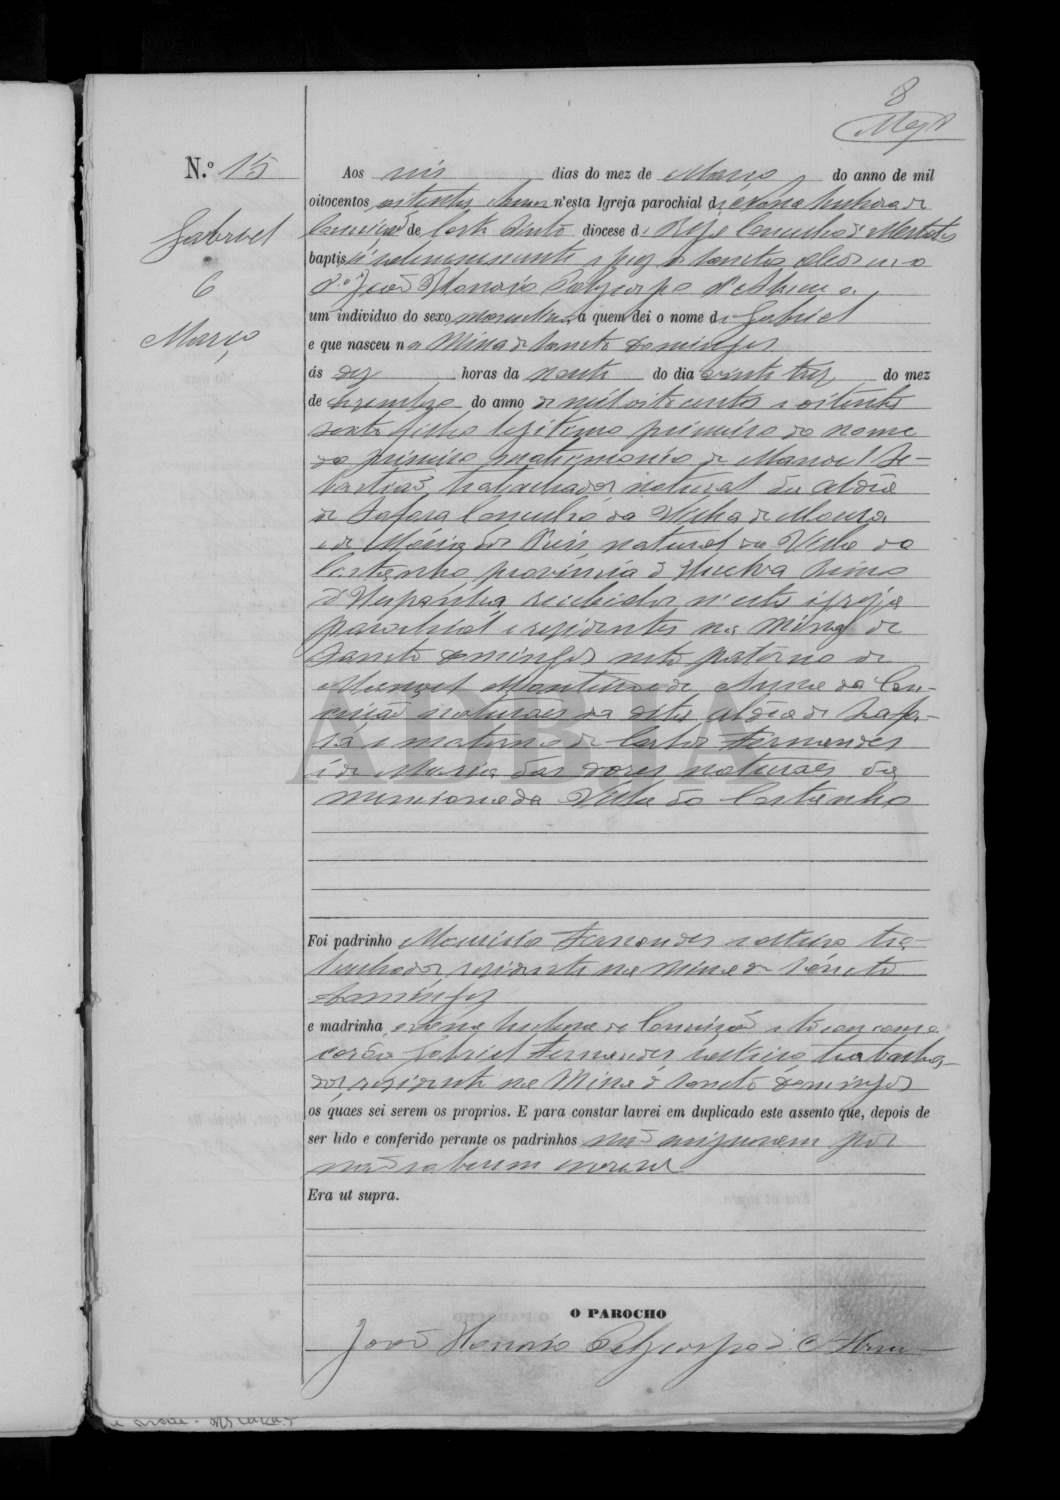 8
N.º 15
Gabriel
6
Março
Aos seis dias do mez de Março do anno de mil
oitocentos oitenta n'esta Igreja parochial de Nossa Senhora da
Conceição de Corte do Pinto diocese de Beja Concelho de Mertola
baptisei solemnemente e puz os Santos Oleos eu o
P.e João Honorio Polycarpo d'Abreu a
um individuo do sexo masculino, a quem dei o nome de Gabriel
e que nasceu na Mina de Sancto Domingos
ás dez horas da noute do dia vinte trez do mez
de Dezembro do anno de mil oitocentos e oitenta
filho legitimo primeiro do nome
do primeiro matrimonio de Manoel Se-
bastião, trabalhador natural da Aldêa
de Safara Concelho da Villa de Moura
e de Maria dos Reis natural da Villa do
Castanho provincia d'Huelva Reino
d'Hespanha recebidos n'esta igreja
parochial e residentes na Mina de
Sancto Domingos neto paterno de
Manoel Monteiro e de Anna da Con-
ceição naturaes da dita aldêa de Safa-
ra e materno de Carlos Fernandes
e de Maria das Dores naturaes da
mencionada Villa do Castanho
Foi padrinho Mauricio Fernandes solteiro tra-
balhador residente na Mina de Sancto
Domingos
e madrinha Nossa Senhora da Conceição e tocou com a
corôa Gabriel Fernandes solteiro trabalha-
dor residente na Mina de Sancto Domingos
os quaes sei serem os proprios. E para constar lavrei em duplicado este assento que, depois de
ser lido e conferido perante os padrinhos não assignarem por
não saberem escrever
Era ut supra.
O PAROCHO
João Honorio Polycarpo d'Abreu
ADBJA